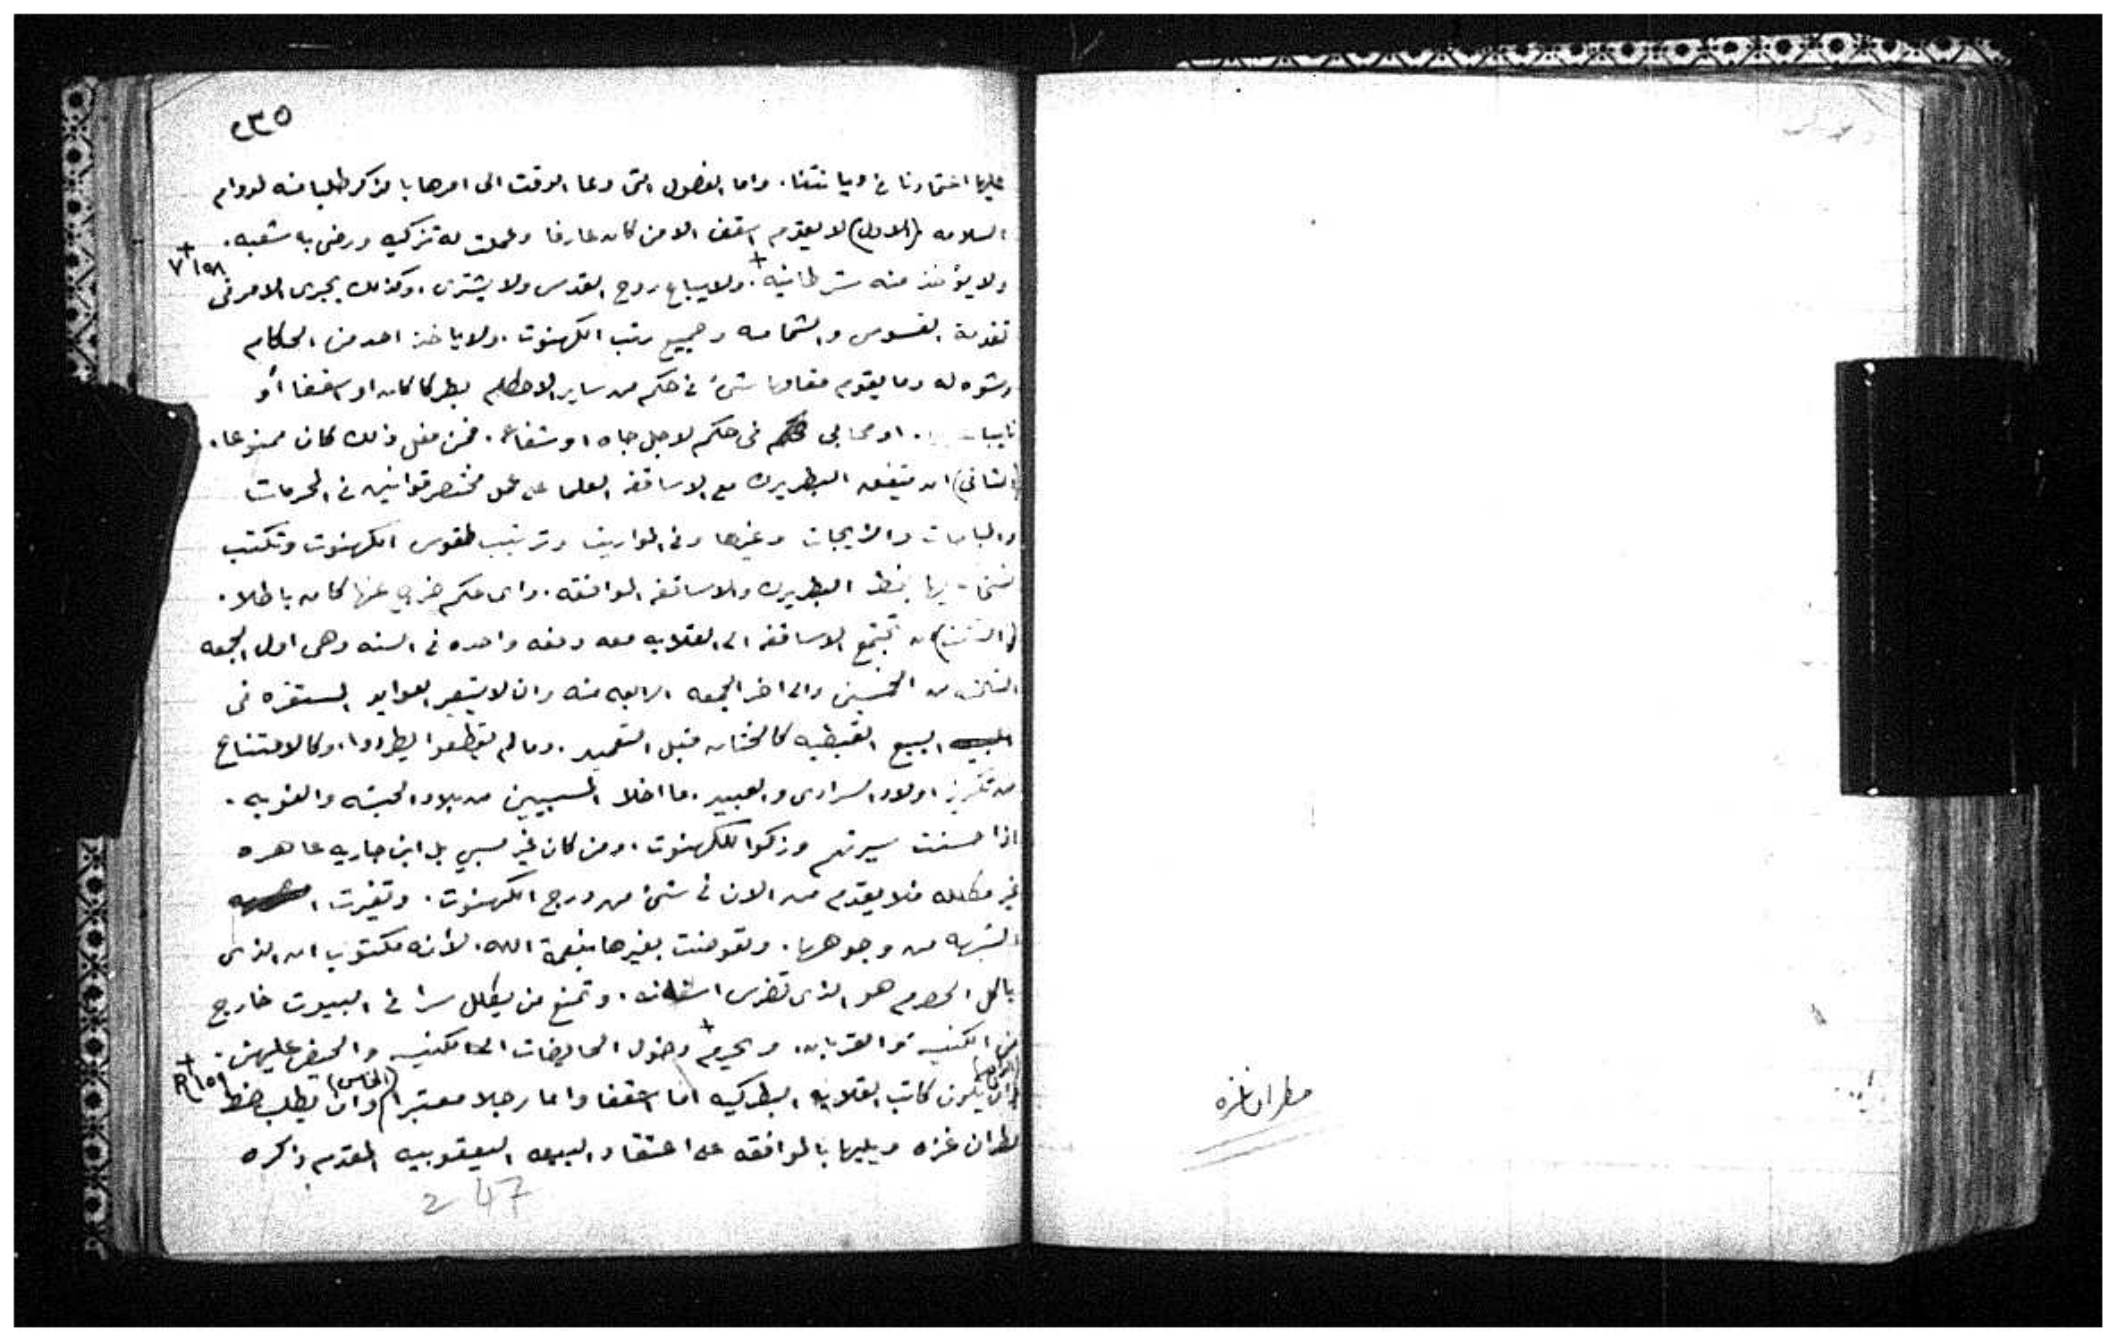 ٢٣٥
عليها اعتمادنا في ديانتنا. واما الفصول التى دعا الوقت الى امرها بالذكر طلبا منه لدوام
السلامه (الاول) لا يقدم اسقف الا من كان عارفا وعملت له تزكيه ورضى به شعبه.
ولا يؤخذ منه شرطانيه+. ولا يباع روح القدس ولا يشترى. وكذلك يجرى الامر في
+ ١٥٨ V
تقدمة القسوس والشمامسه وجميع رتب الكهنوت. ولا ياخذ احد من الحكام
رشوه له وما يقوم مقامها شئ في حكم من ساير الاحكام بطركا كان او اسقفا أو
نايبا. او يحابي في حكم لاجل جاه او شفاعه. فمن فعل ذلك كان ممنوعا.
(الثاني) ان يتفق البطريرك مع الاساقفه العلما على عمل مختصر قوانين في المحرمات
والمباحات والزيجات وغيرها وفي المواريث وترتيب طقوس الكهنوت وتكتب
نسخا بخط البطريرك والاساقفه الموافقه. واى حكم خرج عنها كان باطلا.
(الثالث) ان تجتمع الاساقفه الى القلايه معه دفعه واحده في السنه وهى اول الجمعه
الثالثه من الخمسين والى اخر الجمعه الرابعه منه وان لا يتغير العوايد المستقره في
البيع القبطيه كالختان قبل التعميد. وما لم يقطعوا يطردوا. وكالامتناع
من تكريز اولاد السرارى والعبيد. ما اخلا المسبيين من بلاد الحبشه والنوبه.
اذا حسنت سيرتهم وزكوا للكهنوت. ومن كان غير مسبي بل ابن جاريه عاهره
غير مكلله فلا يقدم من الان في شئ من درج الكهنوت. وتغيرت
الشبهه من وجوهها. وتعوضت بغيرها بنعمة الله. لأنه مكتوب ان الذى
ياكل الحصرم هو الذى تضرس اسنانه. وتمنع من يكلل سرا في البيوت خارج
من الكنيسه والقربان. ويحرم+ دخول الحايضات الى الكنيسه والحيض عليهن.
+ ١٥٩ R
(الرابع) ان يكون كاتب القلايه البطركيه اما اسقفا واما رجلا معتبرا (الخامس) وان يطلب خط
مطران غزه ويليها بالموافقه على اعتقاد البيعه اليعقوبيه المقدم ذكره
247
مطران غزه